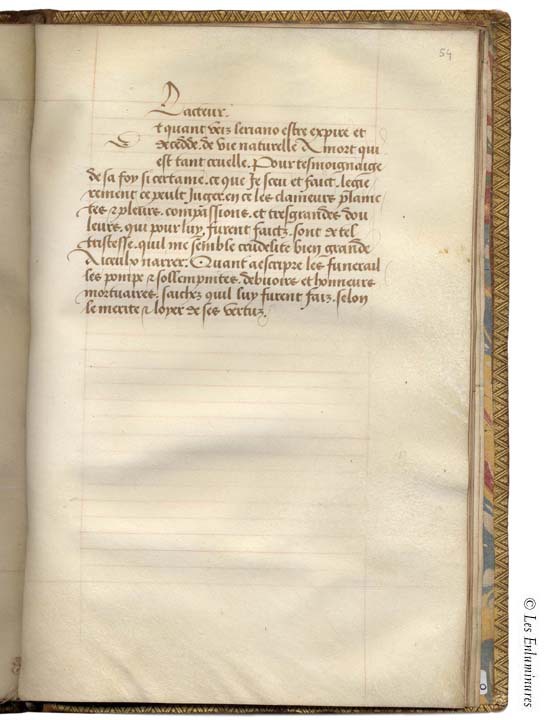 54
Lacteur.
Et quant veiz leriano estre expire et
decedde. de vie naturelle A mort qui
est tant cruelle. Pour tesmoignaige
de sa foy si certaine. ce que Je sceu et faict. legie
rement ce peult Juger. en ce les clameurs plame
tes & pleurs. compassions. et tresgrandes dou
leurs. qui pour luy. furent faictz. sont de tel
tristesse. quil me semble crudelite bien grande
A iceulx narrer. Quant a escripre les funerail
les pompe & sollempnites. debuoirs et honneurs
mortuaires. saichez quil luy furent faiz. selon
le merite & loyer de ses vertuz.
© Les Enluminures